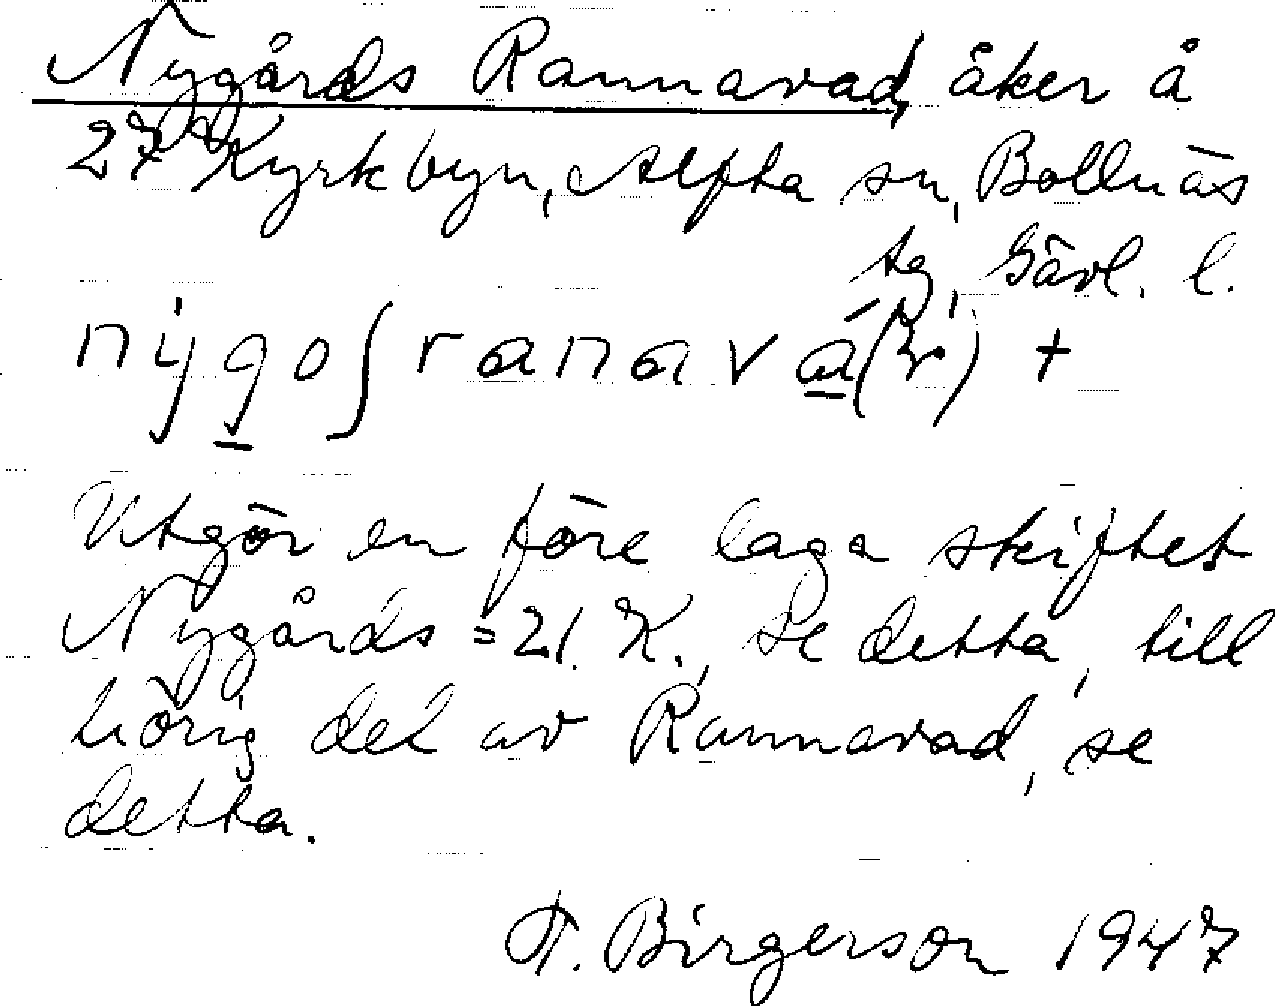 Nygårds Rannavad, åker å
27 Kyrkbyn, Alfta sn, Bollnäs
tg, Gävl. l.
nýgo∫ranava̱(r) +
Utgör en före laga skiftet
Nygårds = 21. K., se detta, till
hörig del av Rannavad, se
detta.
F. Birgerson 1947